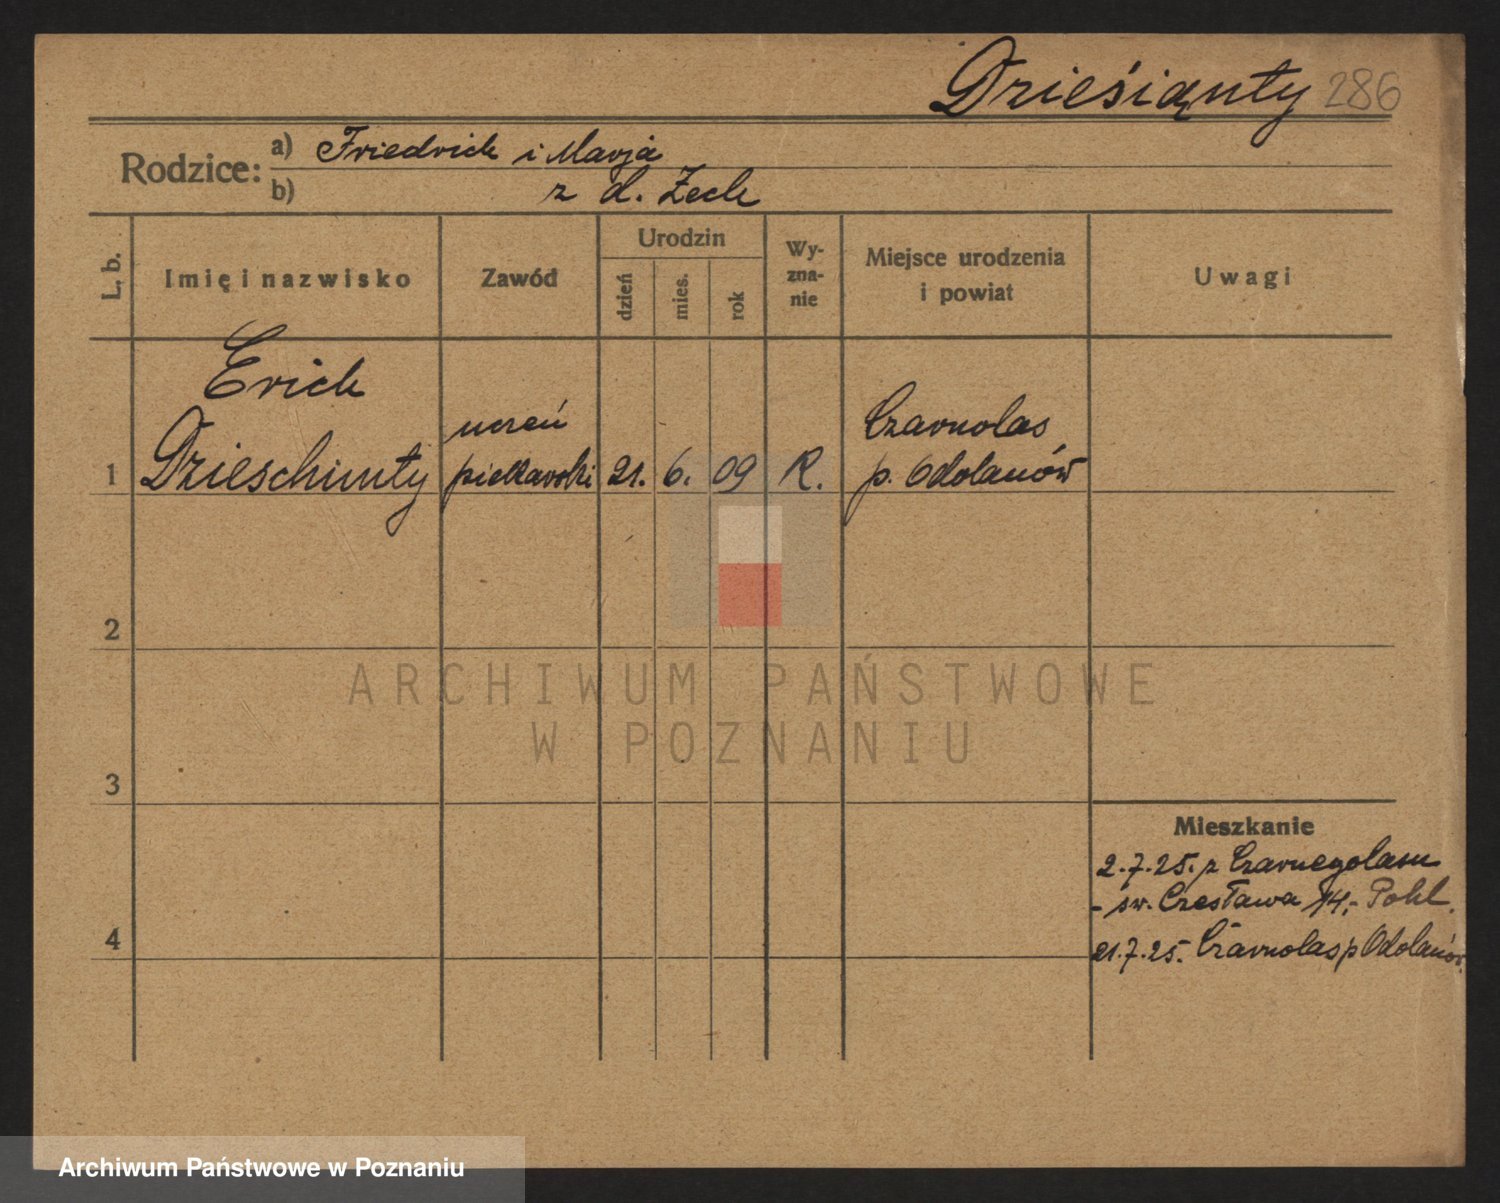 Dziesiąnty 286
Rodzice: a) Friedrich i Marja
b) z d. Zech
L. b. Imię i nazwisko Zawód Urodzin Wy-zna-nie Miejsce urodzenia i powiat Uwagi
dzień mies. rok
Erich
uczeń Czarnolas
1 Dzieschinty piekarski 21. 6. 09 R. p. Odolanów
2
ARCHIWUM PAŃSTWOWE
W POZNANIU
3
Mieszkanie
2.7.25. z Czarnegolasu
4 - św. Czesława 14,- Pohl.
21.7.25. Czarnolas p Odolanów.
Archiwum Państwowe w Poznaniu